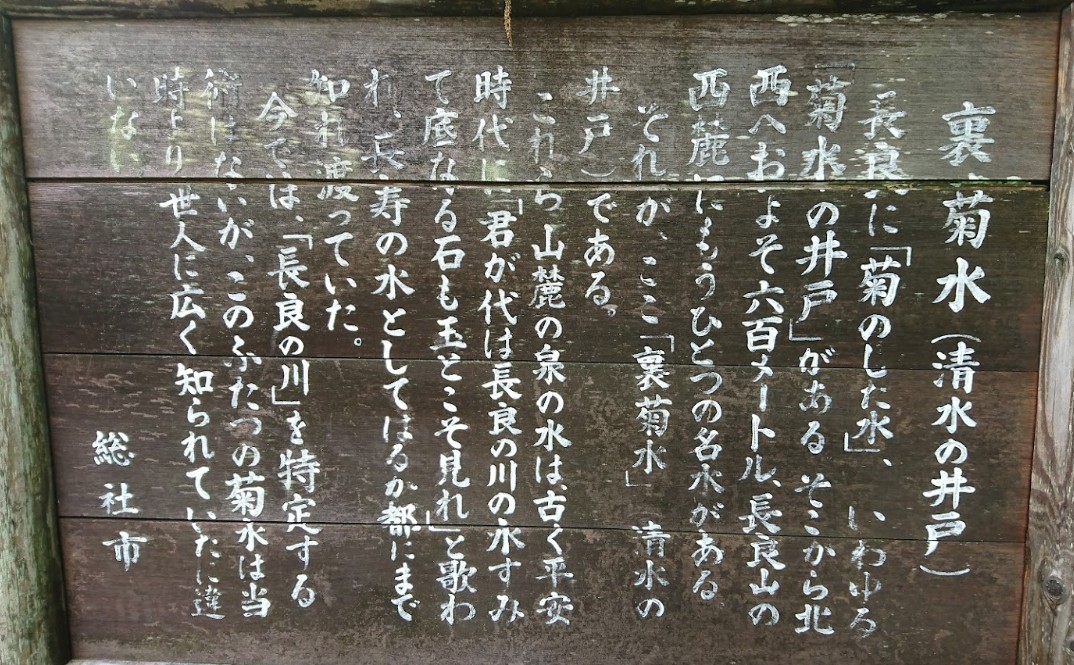 裏菊水(清水の井戸)
長良に「菊のした水」、いわゆる
「菊水の井戸」がある そこから北
西へおよそ六百メートル、長良山の
西麓にもうひとつの名水がある
それが、ここ「裏菊水」 清水の
井戸)である。
これら山麓の泉の水は、古く平安
時代に「君が代は長良の川の水すみ
て底なる石も玉とこそ見れ」と歌わ
れ、長寿の水としてはるか都にまで
知れ渡っていた。
今では、「長良の川」を特定する
術はないが、このふたつの菊水は当
時より世人に広く知られていたに違
いない
総社市